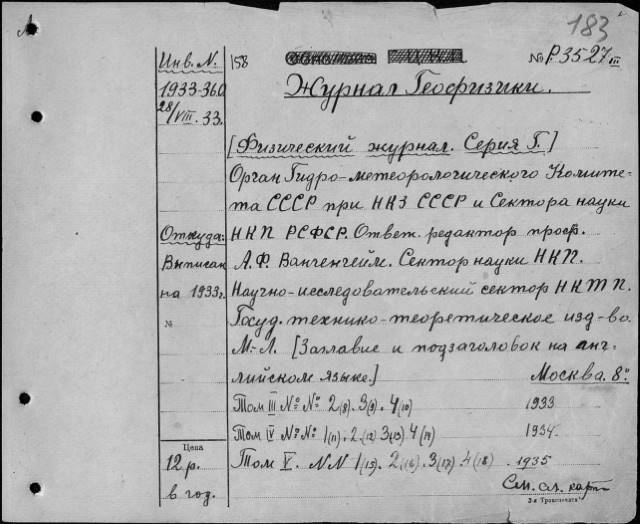 183
Инв. N. 158 № Р3527 III
1933-360
28/VIII. 33.
Журнал Геофизики.
[Физический журнал. Серия Г.]
Орган Гидро-метеорологического Комите-
та СССР при НКЗ СССР и Сектора науки
Откуда: НКП РСФСР. Ответ. редактор проф.
Выписан А.Ф. Вангенгейм. Сектор науки НКП.
на 1933г. Научно-исследовательский сектор НКТП.
№ Госуд. технико-теоретическое изд-во.
М.-Л. [Заглавие и подзаголовок на анг-
лийском языке.] Москва. 8°.
Том III №№ 2(8). 3(9). 4(10) 1933
Том IV №№ 1(11). 2(12) 3(13) 4(14) 1934.
Цена
12 р. Том V. NN 1(15). 2(16). 3(17). 4(18) 1935
в год. См. сл. карт.